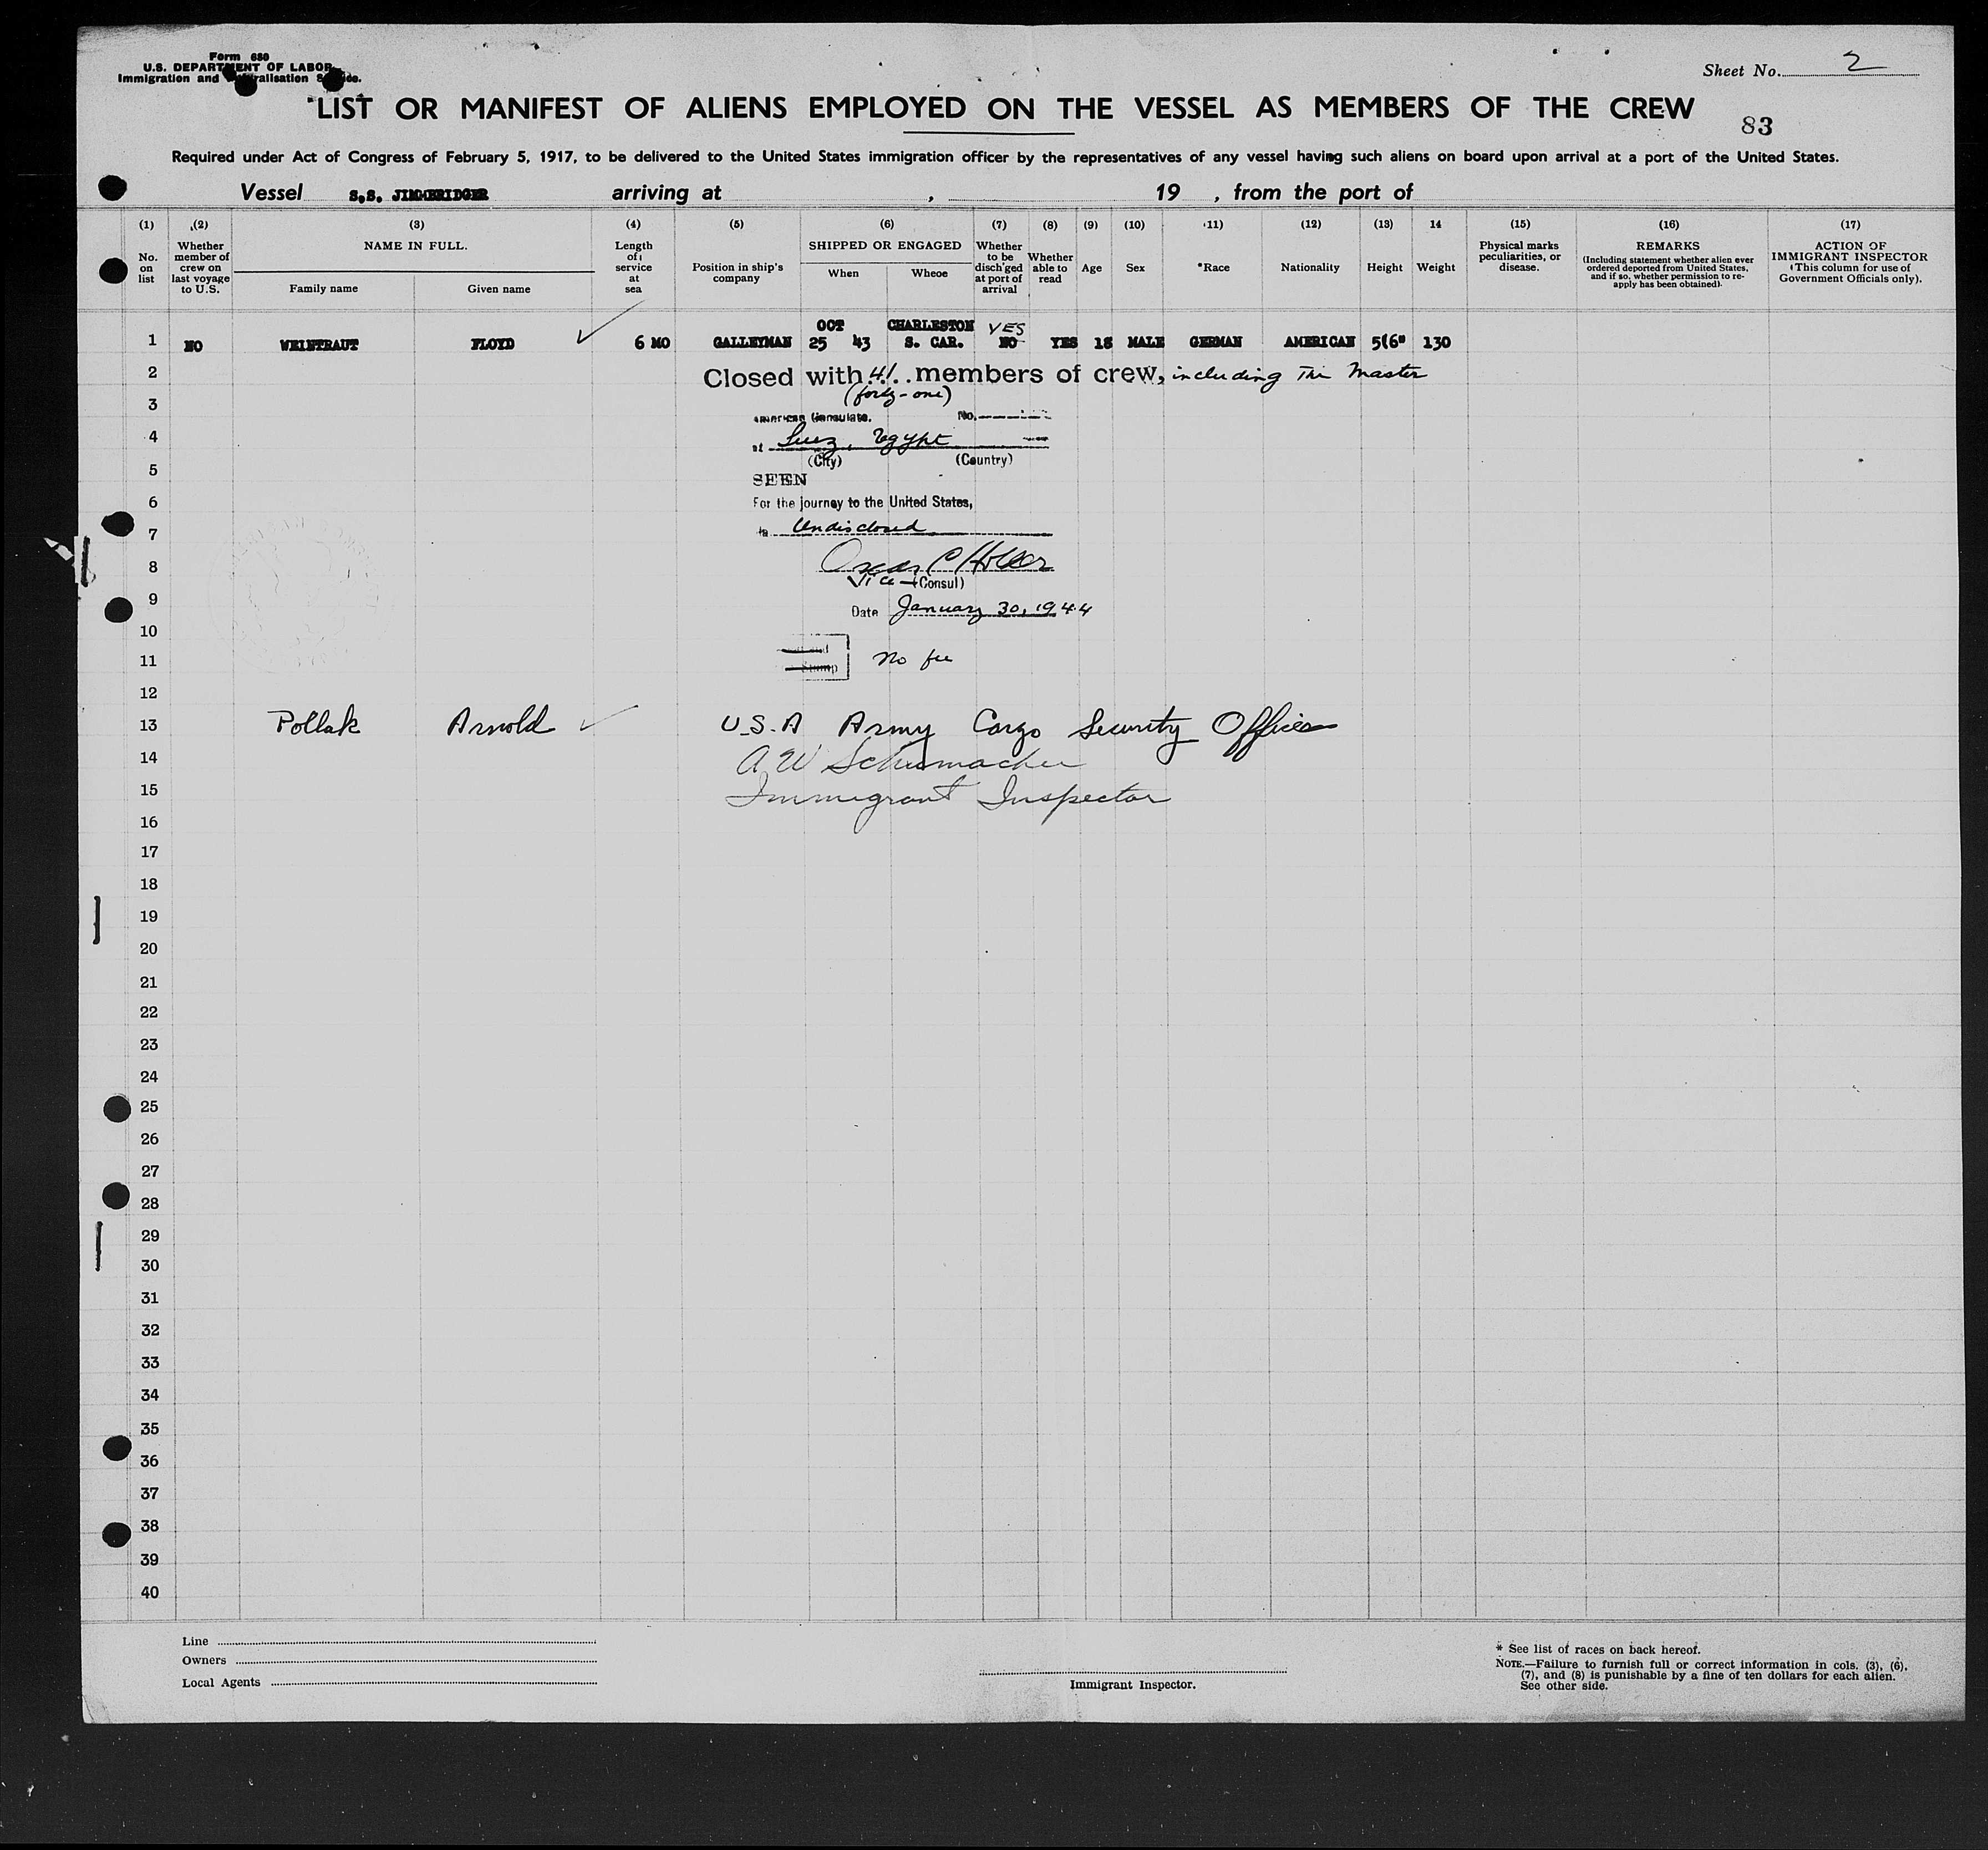 Form 680
U.S. DEPARTMENT OF LABOR
Immigration and Naturalisation Service.
Sheet No. 2
LIST OR MANIFEST OF ALIENS EMPLOYED ON THE VESSEL AS MEMBERS OF THE CREW
83
Required under Act of Congress of February 5, 1917, to be delivered to the United States immigration officer by the representatives of any vessel having such aliens on board upon arrival at a port of the United States.
Vessel S.S. JIM BRIDGER arriving at , 19 , from the port of
(1) (2) (3) (4) (5) (6) (7) (8) (9) (10) (11) (12) (13) 14 (15) (16) (17)
No. on list
Whether member of crew on last voyage to U.S.
NAME IN FULL.
Family name
Given name
Length of service at sea
Position in ship's company
SHIPPED OR ENGAGED
When
Wheoe
Whether to be disch'ged at port of arrival
Whether able to read
Age
Sex
*Race
Nationality
Height
Weight
Physical marks peculiarities, or disease.
REMARKS
(Including statement whether alien ever ordered deported from United States, and if so, whether permission to re-apply has been obtained).
ACTION OF IMMIGRANT INSPECTOR
(This column for use of Government Officials only).
OCT CHARLESTON YES
1 NO WEINTRAUT FLOYD 6 MO GALLEYMAN 25 43 S. CAR. NO YES 18 MALE GERMAN AMERICAN 5'6" 130
2 Closed with 41 members of crew, including The Master
3 (forty-one)
American Consulate, No.
4 at Suez, Egypt
5 (City) (Country)
SEEN
6 For the journey to the United States,
7 Undisclosed
8 Oscar C Holder
Vice (Consul)
9 Date January 30, 1944
10
11 Stamp No fee
12
13 Pollak Arnold U.S.A Army Cargo Security Officer
14 A W Schumacher
15 Immigrant Inspector
16
17
18
19
20
21
22
23
24
25
26
27
28
29
30
31
32
33
34
35
36
37
38
39
40
Line
Owners
Local Agents
Immigrant Inspector.
* See list of races on back hereof.
NOTE.—Failure to furnish full or correct information in cols. (3), (6),
(7), and (8) is punishable by a fine of ten dollars for each alien.
See other side.